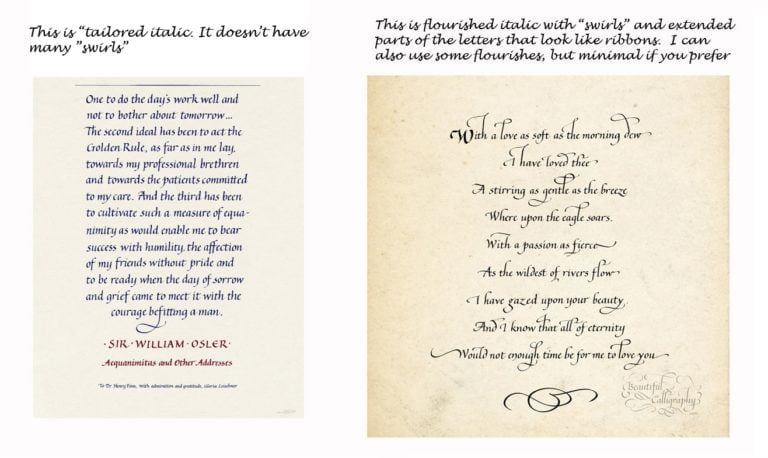 This is “tailored italic. It doesn’t have
many ”swirls”
One to do the day's work well and
not to bother about tomorrow...
The second ideal has been to act the
Golden Rule, as far as in me lay,
towards my professional brethren
and towards the patients committed
to my care. And the third has been
to cultivate such a measure of equa-
nimity as would enable me to bear
success with humility, the affection
of my friends without pride and
to be ready when the day of sorrow
and grief came to meet it with the
courage befitting a man.
·SIR·WILLIAM·OSLER·
Aequanimitas and Other Addresses
To Dr. Henry Finn, with admiration and gratitude, Gloria
This is flourished italic with “swirls” and extended
parts of the letters that look like ribbons. I can
also use some flourishes, but minimal if you prefer
With a love as soft as the morning dew
I have loved thee
A stirring as gentle as the breeze
Where upon the eagle soars.
With a passion as fierce
As the wildest of rivers flow
I have gazed upon your beauty,
And I know that all of eternity
Would not enough time be for me to love you
Beautiful
Calligraphy